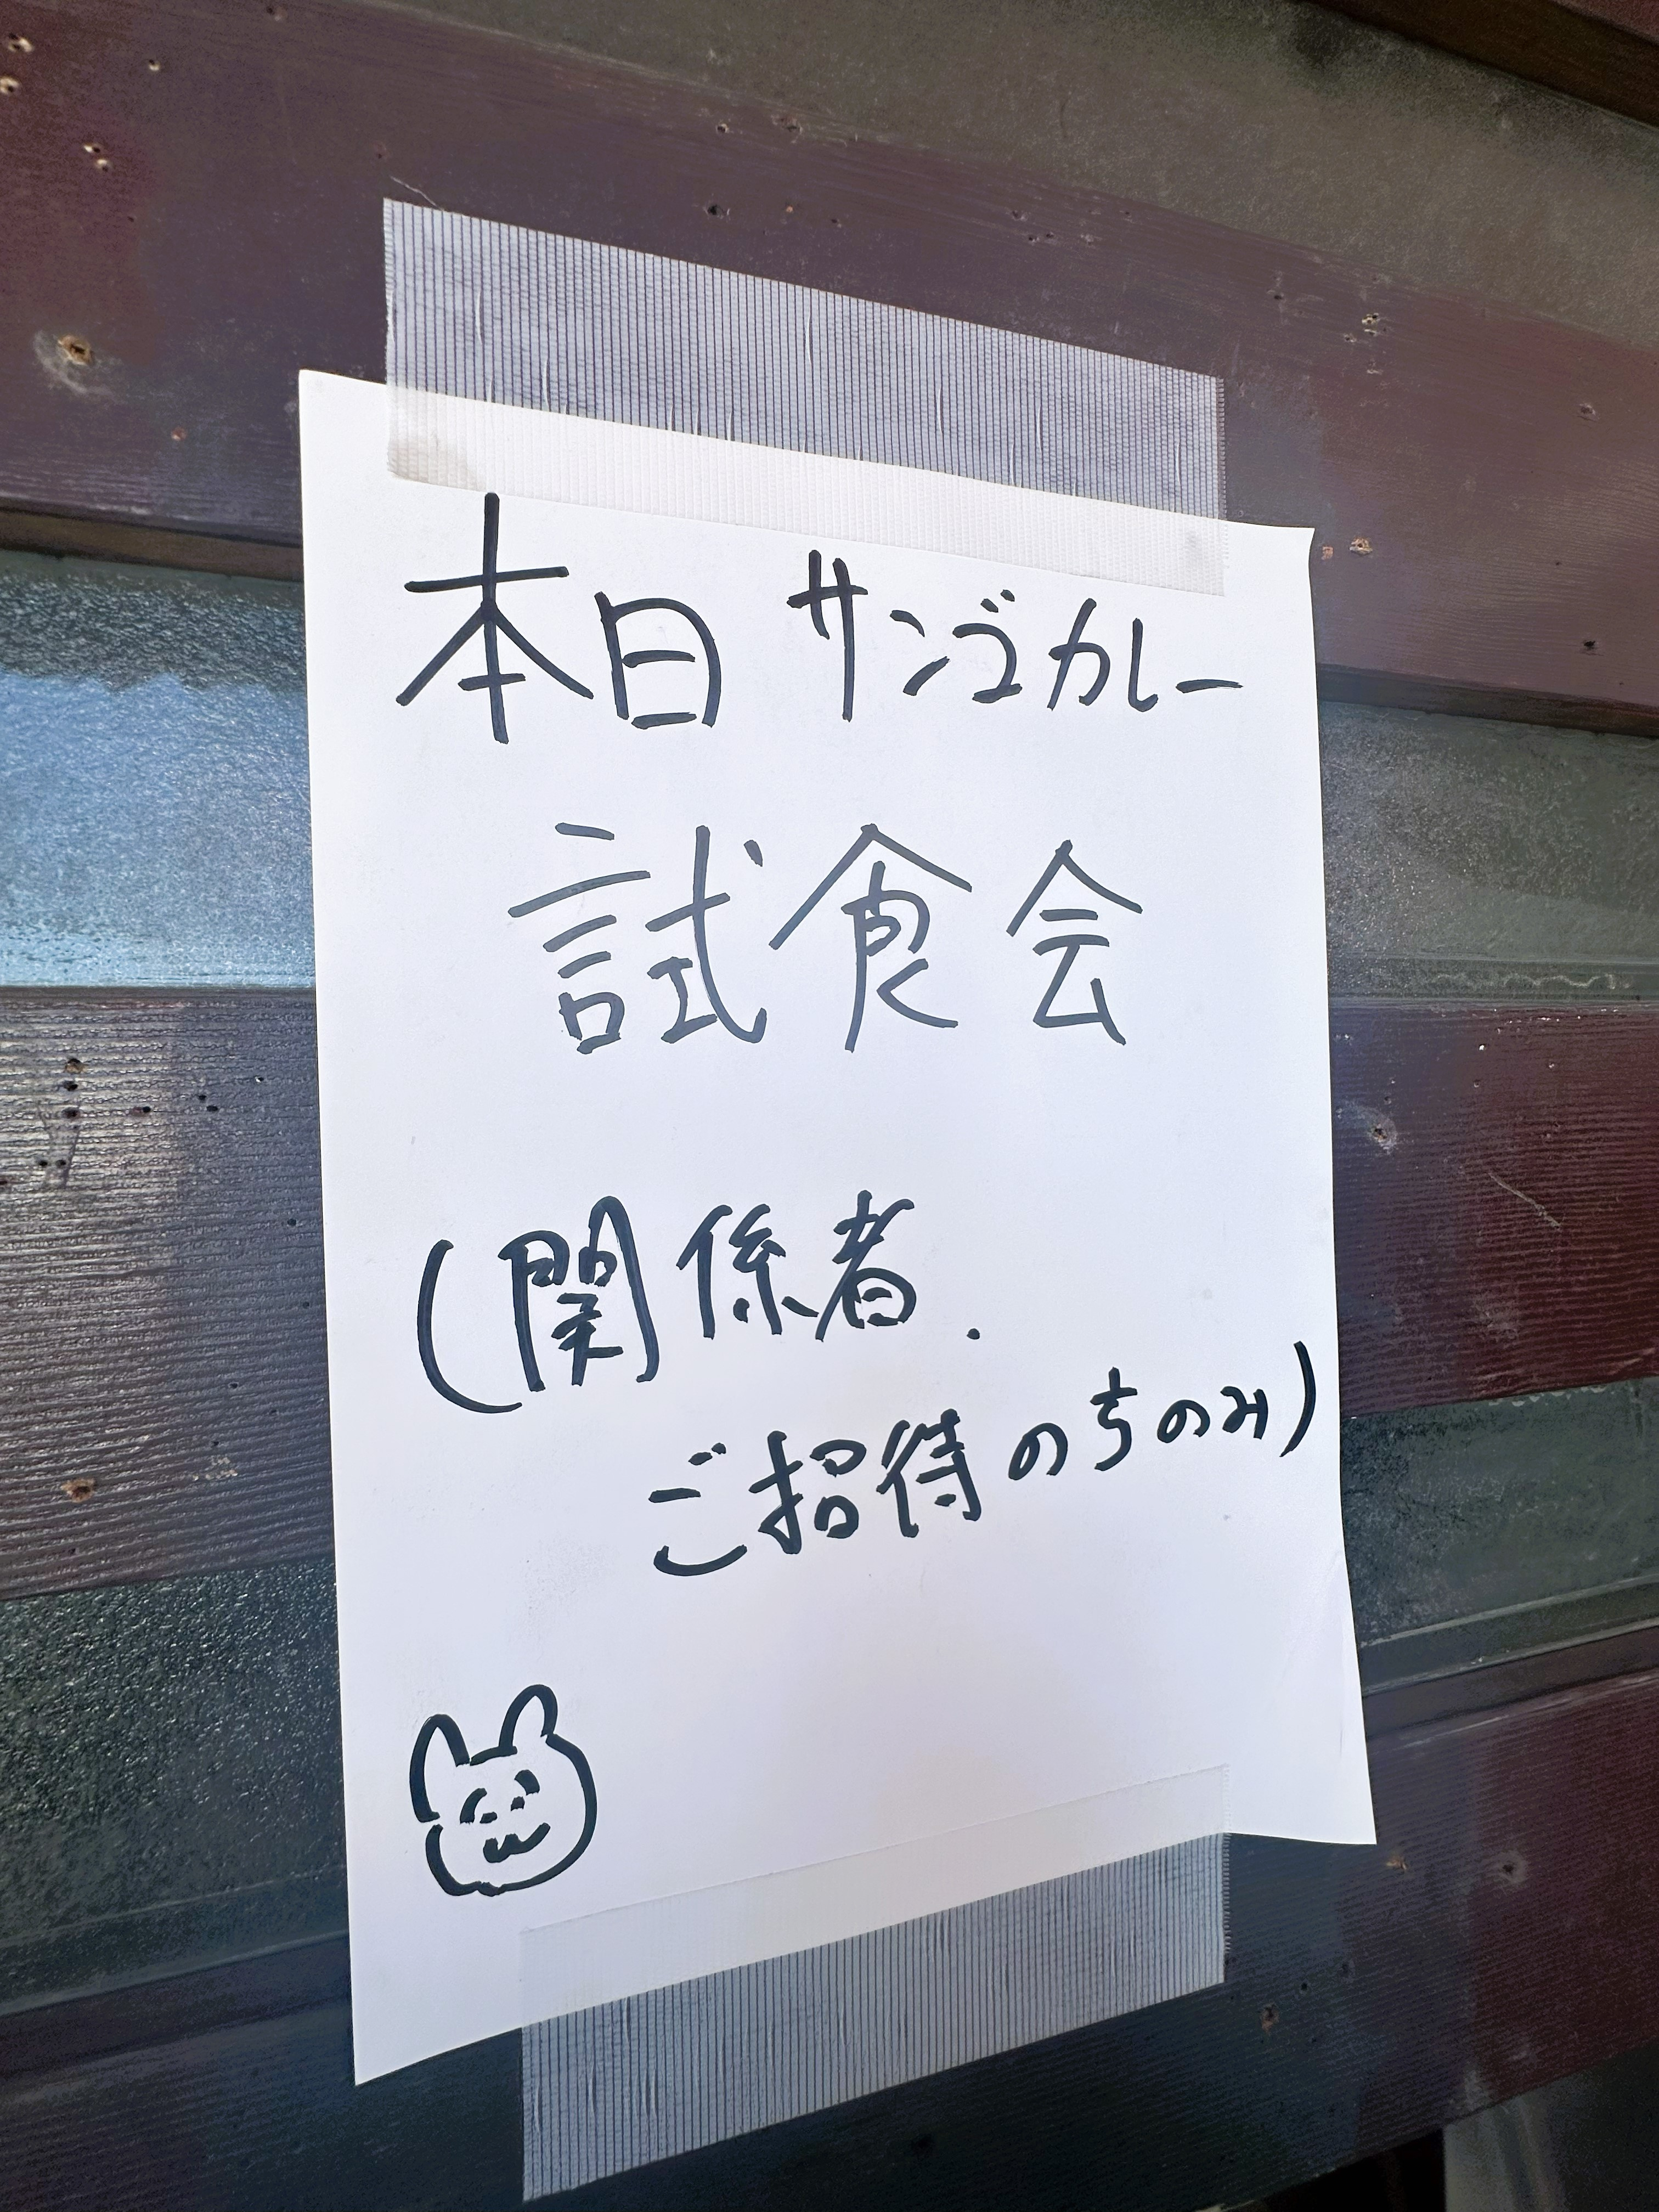 本日 サンゴカレー
試食会
(関係者.
ご招待のちのみ)